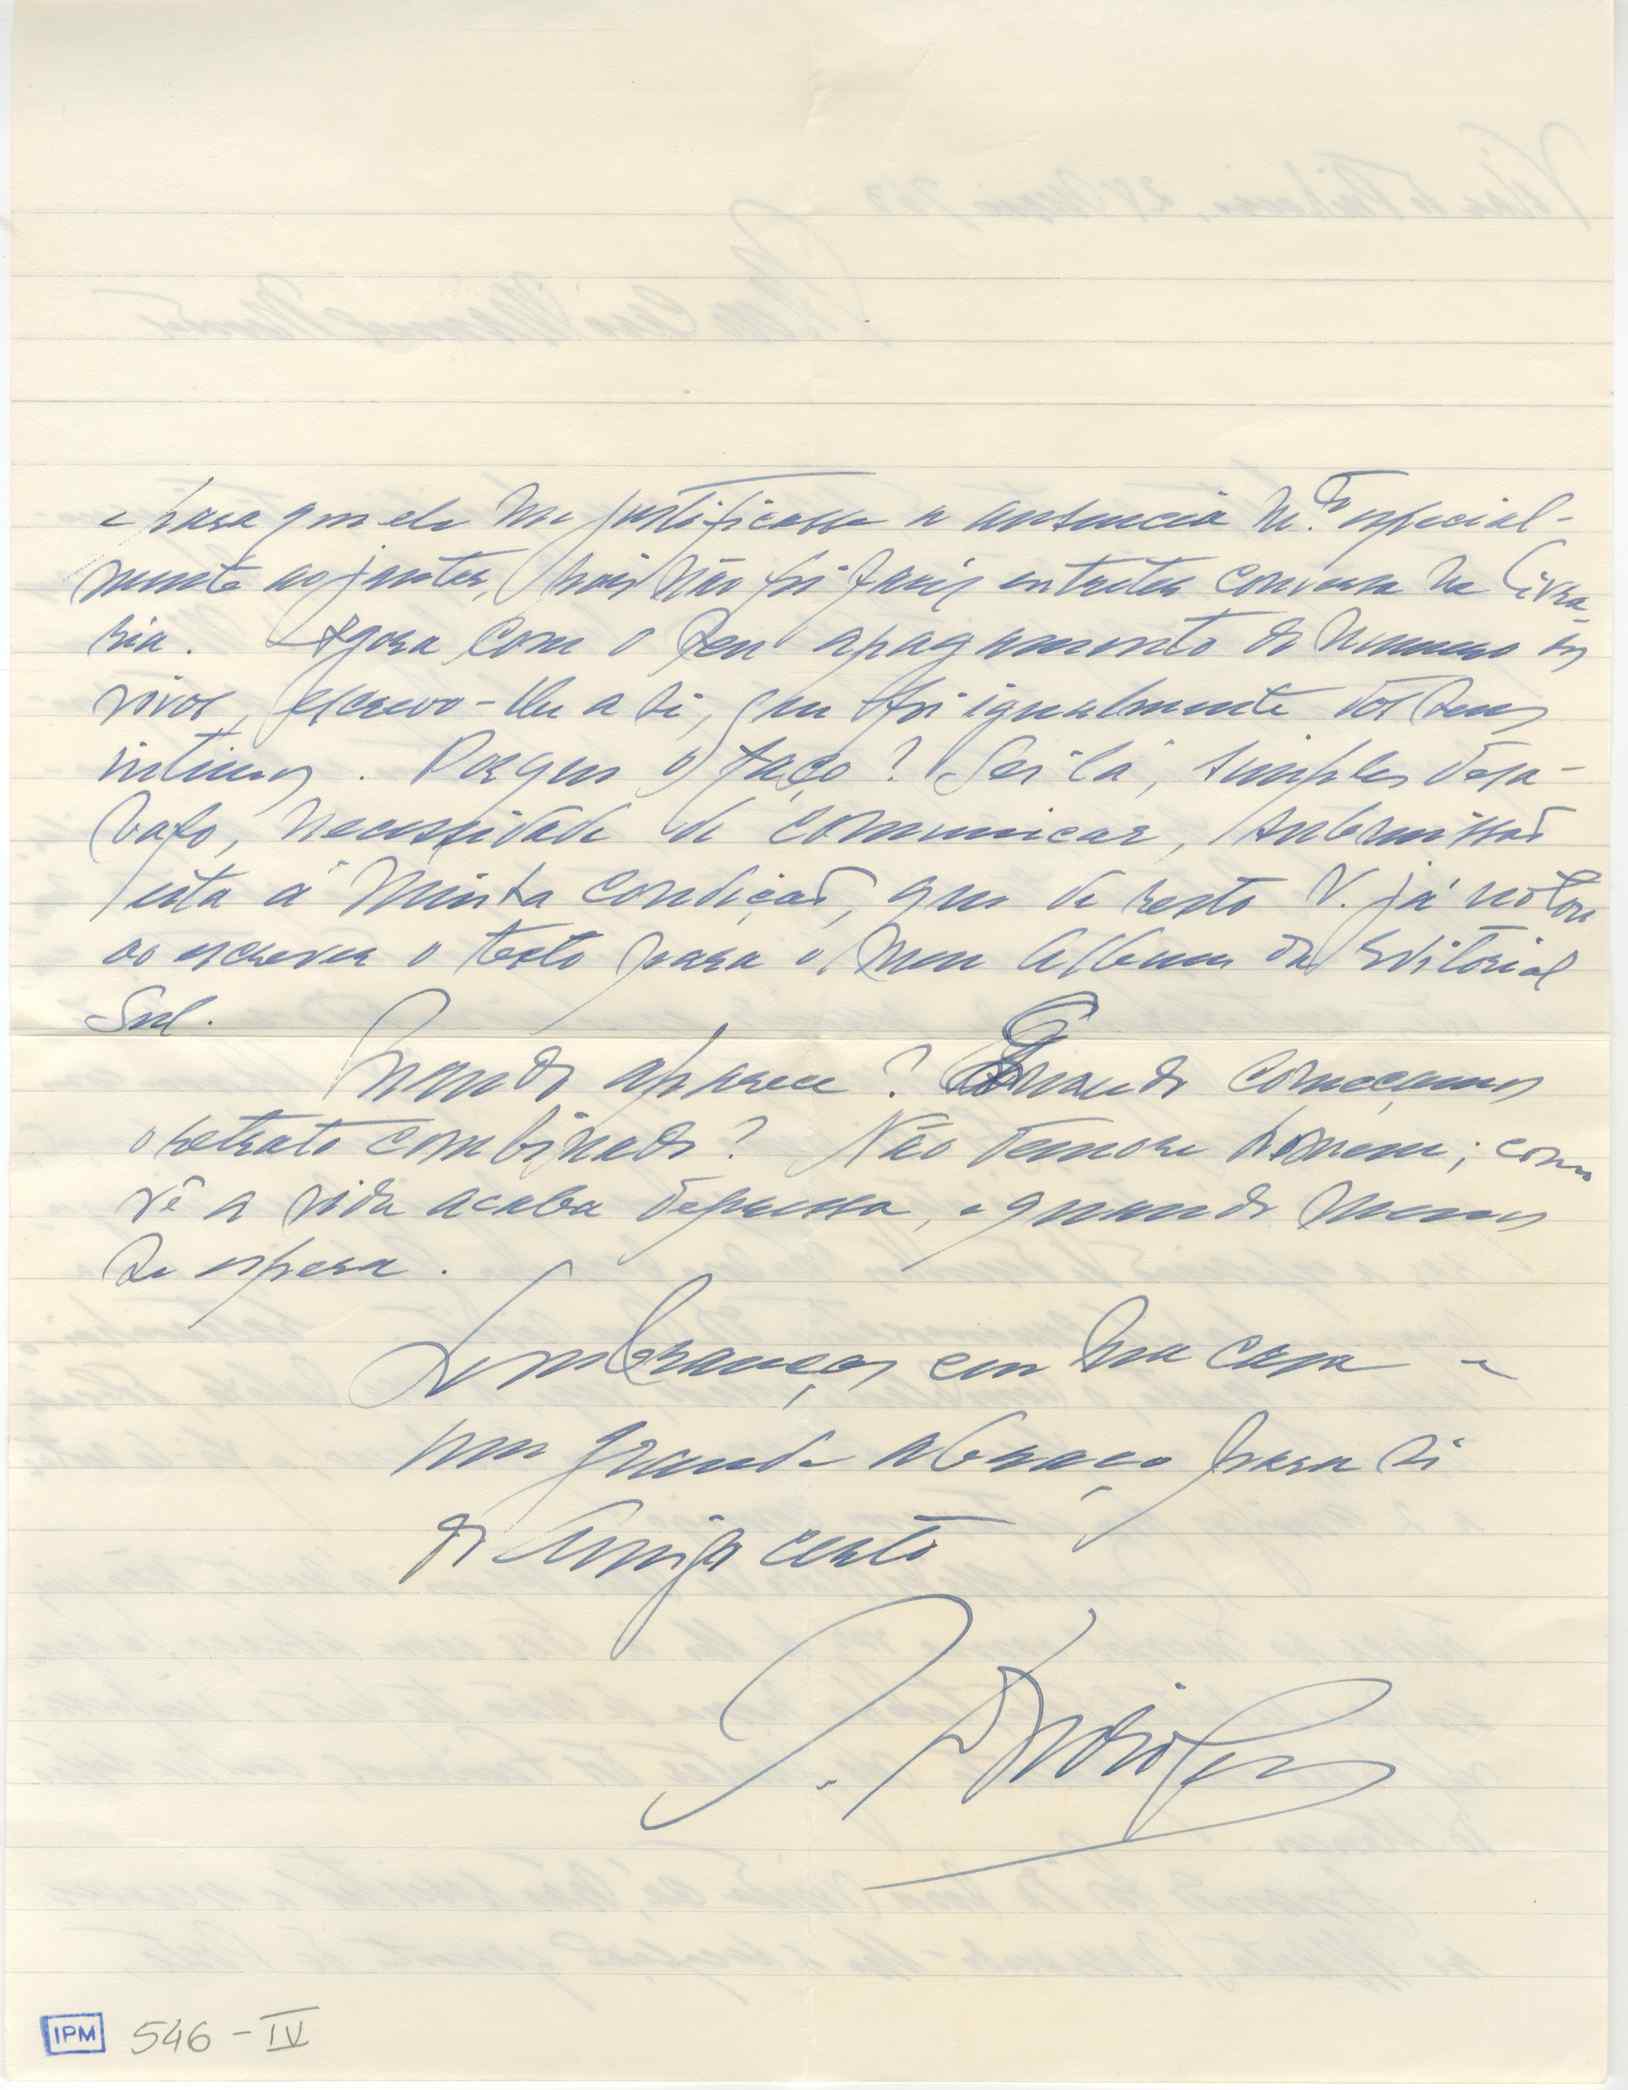 e para que ele me justificasse a ausencia m.to especial-
mente ao jantar, pois não foi facil entreter conversa na Livra-
ria. Agora com o seu apagamento do numero dos
vivos, escrevo-lhe a si, que foi igualmente dos seus
intimos. Porque o faço? Sei lá, simples desa-
bafo, necessidade de comunicar, submissão
esta á minha condição, que de resto V. já notou
ao escrever o texto para o meu Album da Editorial
Sul.
Quando aparece? Quando começamos
o retrato combinado? Não demore homem; como
vê a vida acaba depressa, e quando menos
se espera.
Lembranças em sua casa e
um grande abraço para si
do Amigo certo
IPM 546-IV